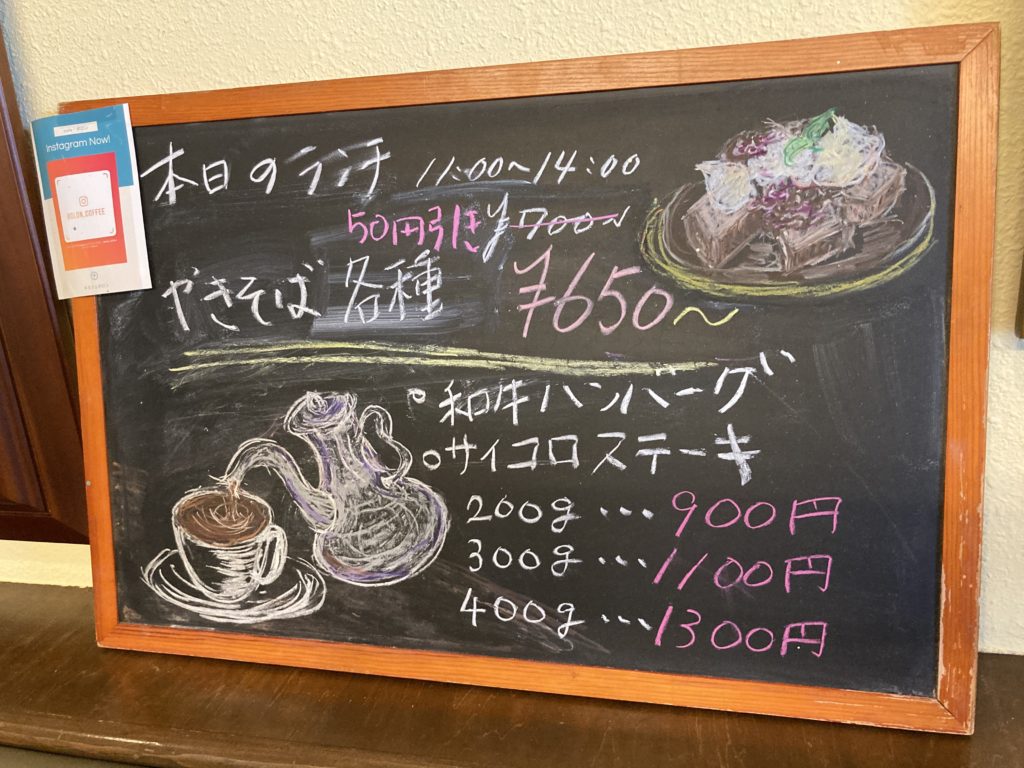 Instagram Now!
本日のランチ 11:00〜14:00
50円引き ¥700〜
やきそば各種 ¥650〜
和牛ハンバーグ
サイコロステーキ
200g…900円
300g…1100円
400g…1300円